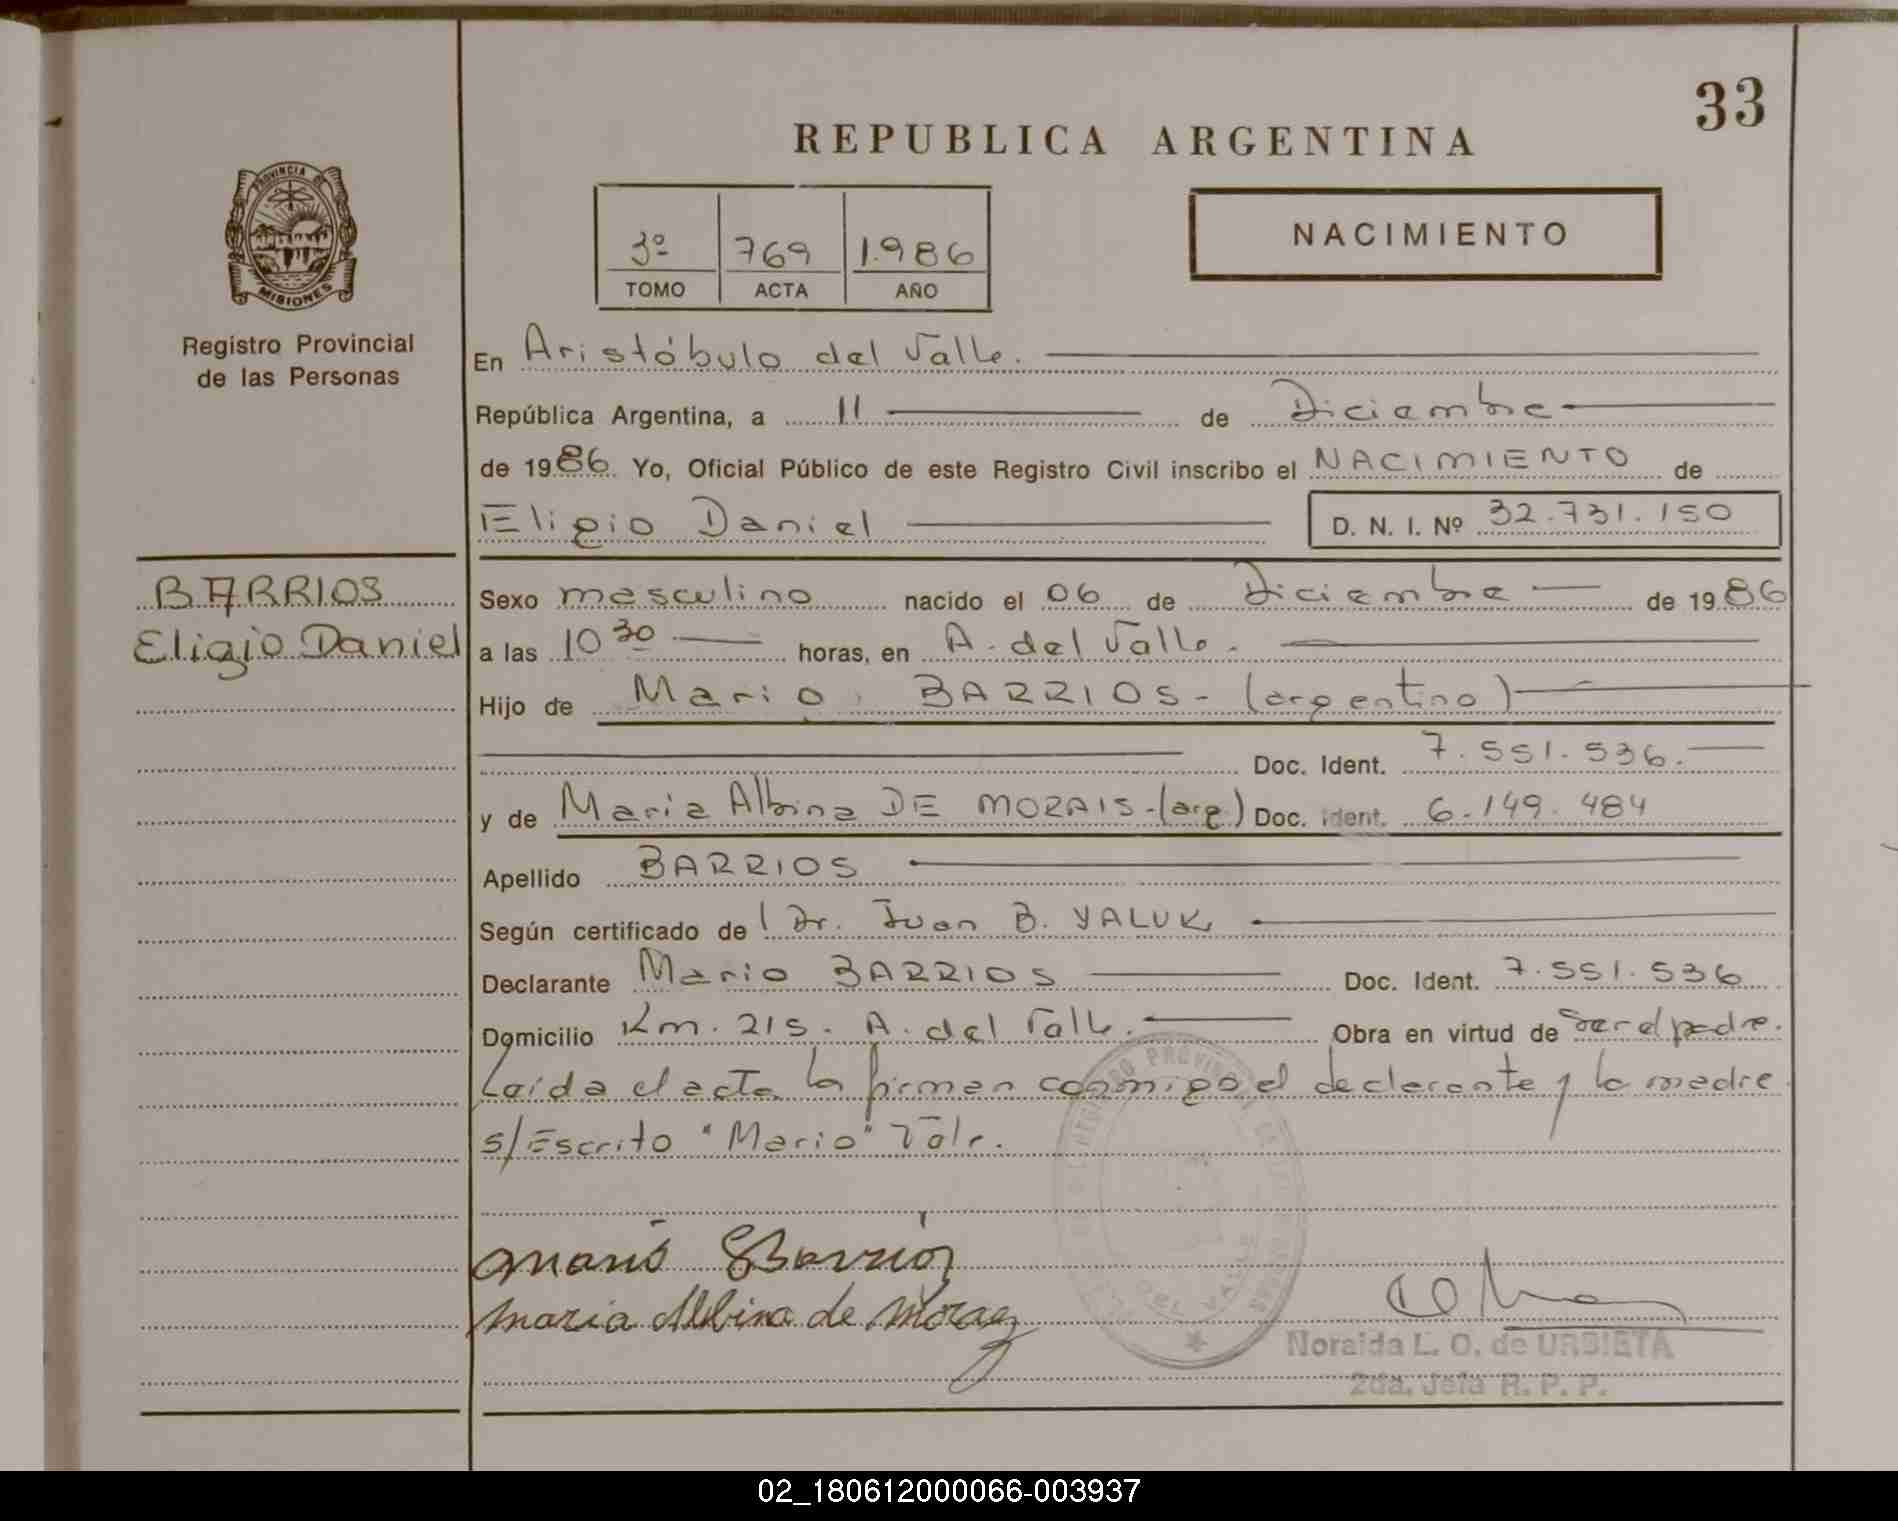 33
REPUBLICA ARGENTINA
PROVINCIA DE
MISIONES
Registro Provincial
de las Personas
3º 769 1.986
TOMO ACTA AÑO
NACIMIENTO
En Aristóbulo del Valle.
República Argentina, a 11 de Diciembre
de 1986 Yo, Oficial Público de este Registro Civil inscribo el NACIMIENTO de
Eligio Daniel D. N. I. Nº 32.731.150
BARRIOS
Eligio Daniel
Sexo masculino nacido el 06 de Diciembre de 1986
a las 10 30 horas, en A. del Valle.
Hijo de Mario BARRIOS - (argentino)
Doc. Ident. 7.551.536.
y de Maria Albina DE MORAIS - (arg.) Doc. Ident. 6.149.484
Apellido BARRIOS
Según certificado de Dr. Juan B. YALUK
Declarante Mario BARRIOS Doc. Ident. 7.551.536
Domicilio Km. 215. A. del Valle. Obra en virtud de Ser el padre.
Leída el acta la firman conmigo el declarante y la madre
s/Escrito "Mario" Vale.
Mario Barrios
Maria Albina de Moraez
DEL VALLE
Noraida L. O. de URBIETA
2da. Jefa R. P. P.
02_180612000066-003937